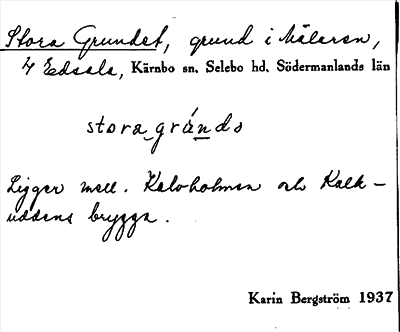 Stora Grundet, grund i Mälaren,
4 Edsala, Kärnbo sn, Selebo hd, Södermanlands län
stora gru̇nds
Ligger mell. Kalvholmen och Kalk-
uddens brygga.
Karin Bergström 1937